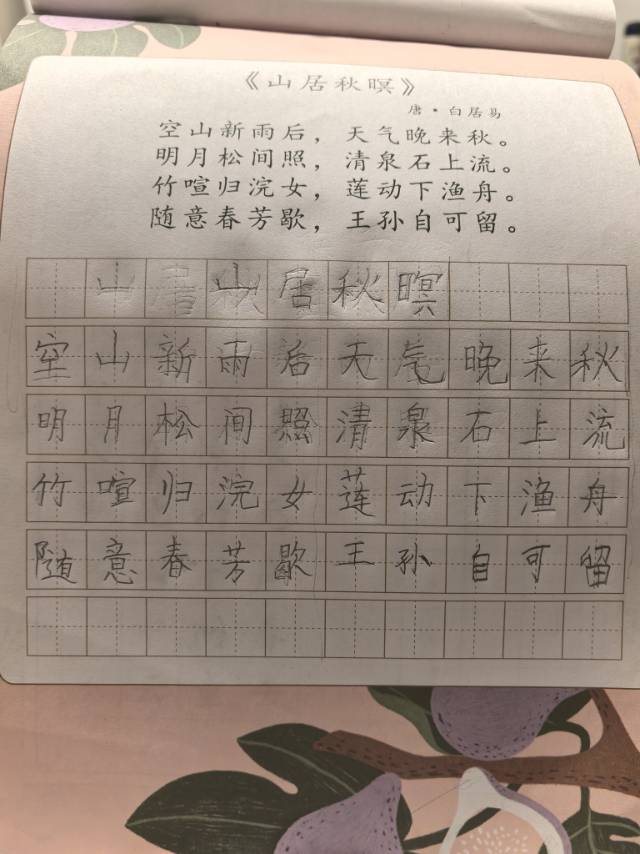 《山居秋暝》
唐·白居易
空山新雨后，天气晚来秋。
明月松间照，清泉石上流。
竹喧归浣女，莲动下渔舟。
随意春芳歇，王孙自可留。
山居秋暝
空山新雨后天气晚来秋
明月松间照清泉石上流
竹喧归浣女莲动下渔舟
随意春芳歇王孙自可留